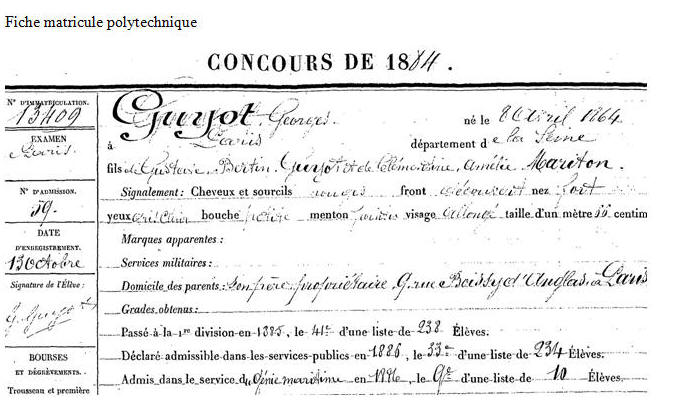 Fiche matricule polytechnique
CONCOURS DE 1884.
N° D'IMMATRICULATION.
13409
EXAMEN
Paris.
N° D'ADMISSION.
59.
DATE
D'ENREGISTREMENT.
13 Octobre
Signature de l'Élève :
G. Guyot
BOURSES
ET DÉGRÈVEMENTS.
Trousseau et première
Guyot Georges né le 8 Avril 1864
à Paris département de la Seine
fils de Gustave, Bertin, Guyot et de Clémentine, Amélie Mariton.
Signalement : Cheveux et sourcils rouges front découvert nez fort
yeux gris clair bouche petite menton visage allongé taille d'un mètre centim
Marques apparentes :
Services militaires :
Domicile des parents : Son père propriétaire, 9, rue Boissy d'Anglas, à Paris
Grades obtenus :
Passé à la 1re division en 1885, le 41e d'une liste de 238 Élèves.
Déclaré admissible dans les services publics en 1886, le 33e d'une liste de 234 Élèves.
Admis dans le service du Génie maritime en 1886, le 9e d'une liste de 10 Élèves.